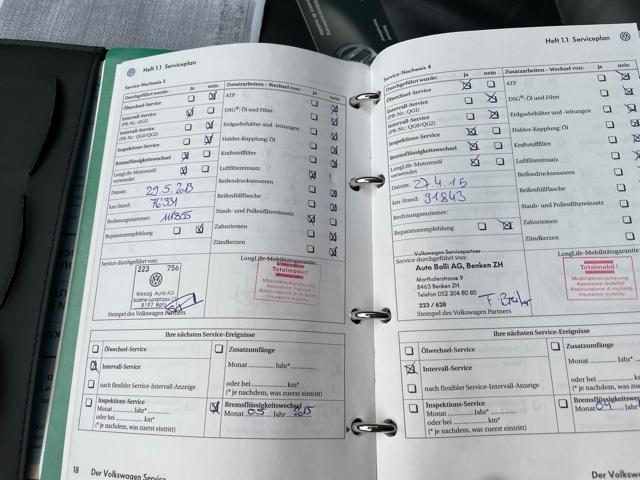 Heft 1.1 Serviceplan
Service-Nachweis 3
Durchgeführt wurde: ja nein
Ölwechsel-Service
Intervall-Service
(PR-Nr. QG1)
Intervall-Service
(PR-Nr. QG0/QG2)
Inspektions-Service
Bremsflüssigkeitswechsel
LongLife-Motorenöl
verwendet
Datum: 29.5.2013
km-Stand:
Rechnungsnummer:
Reparaturempfehlung
Zusatzarbeiten – Wechsel von: ja nein
ATF
DSG®: Öl und Filter
Erdgasbehälter und -leitungen
Haldex-Kupplung: Öl
Kraftstofffilter
Luftfiltereinsatz
Reifendrucksensoren
Reifenfüllflasche
Staub- und Pollenfiltereinsatz
Zahnriemen
Zündkerzen
Service durchgeführt von:
223 756
Wesag Auto AG
Stempel des Volkswagen Partners
LongLife-Mobilitätsgarantie:
Totalmobil!
Mobilitätsversicherung
Assurance mobilité
Assicurazione di mobilità
Insurance mobility
Ihre nächsten Service-Ereignisse
Ölwechsel-Service
Intervall-Service
nach flexibler Service-Intervall-Anzeige
Zusatzumfänge
Monat Jahr*
oder bei km*
(* je nachdem, was zuerst eintritt)
Inspektions-Service
Monat Jahr*
oder bei km*
(* je nachdem, was zuerst eintritt)
Bremsflüssigkeitswechsel
Monat 05 Jahr 2015
18 Der Volkswagen Service
Heft 1.1 Serviceplan
Service-Nachweis 4
Durchgeführt wurde: ja nein
Ölwechsel-Service
Intervall-Service
(PR-Nr. QG1)
Intervall-Service
(PR-Nr. QG0/QG2)
Inspektions-Service
Bremsflüssigkeitswechsel
LongLife-Motorenöl
verwendet
Datum: 27.4.15
km-Stand: 91843
Rechnungsnummer:
Reparaturempfehlung
Zusatzarbeiten – Wechsel von:
ATF
DSG®: Öl und Filter
Erdgasbehälter und -leitungen
Haldex-Kupplung: Öl
Kraftstofffilter
Luftfiltereinsatz
Reifendrucksensoren
Reifenfüllflasche
Staub- und Pollenfiltereinsatz
Zahnriemen
Zündkerzen
Volkswagen Servicepartner
Service durchgeführt von:
Auto Balli AG, Benken ZH
Marthalerstrasse 9
8463 Benken ZH
Telefon 052 304 80 80
223 / 628
Stempel des Volkswagen Partners
LongLife-Mobilitätsgarantie:
Totalmobil!
Mobilitätsversicherung
Assurance mobilité
Assicurazione di mobilità
Insurance mobility
Ihre nächsten Service-Ereignisse
Ölwechsel-Service
Intervall-Service
nach flexibler Service-Intervall-Anzeige
Zusatzumfänge
Monat
oder bei
(* je nachdem,
Inspektions-Service
Monat Jahr*
oder bei km*
(* je nachdem, was zuerst eintritt)
Monat 04
Der Volkswagen